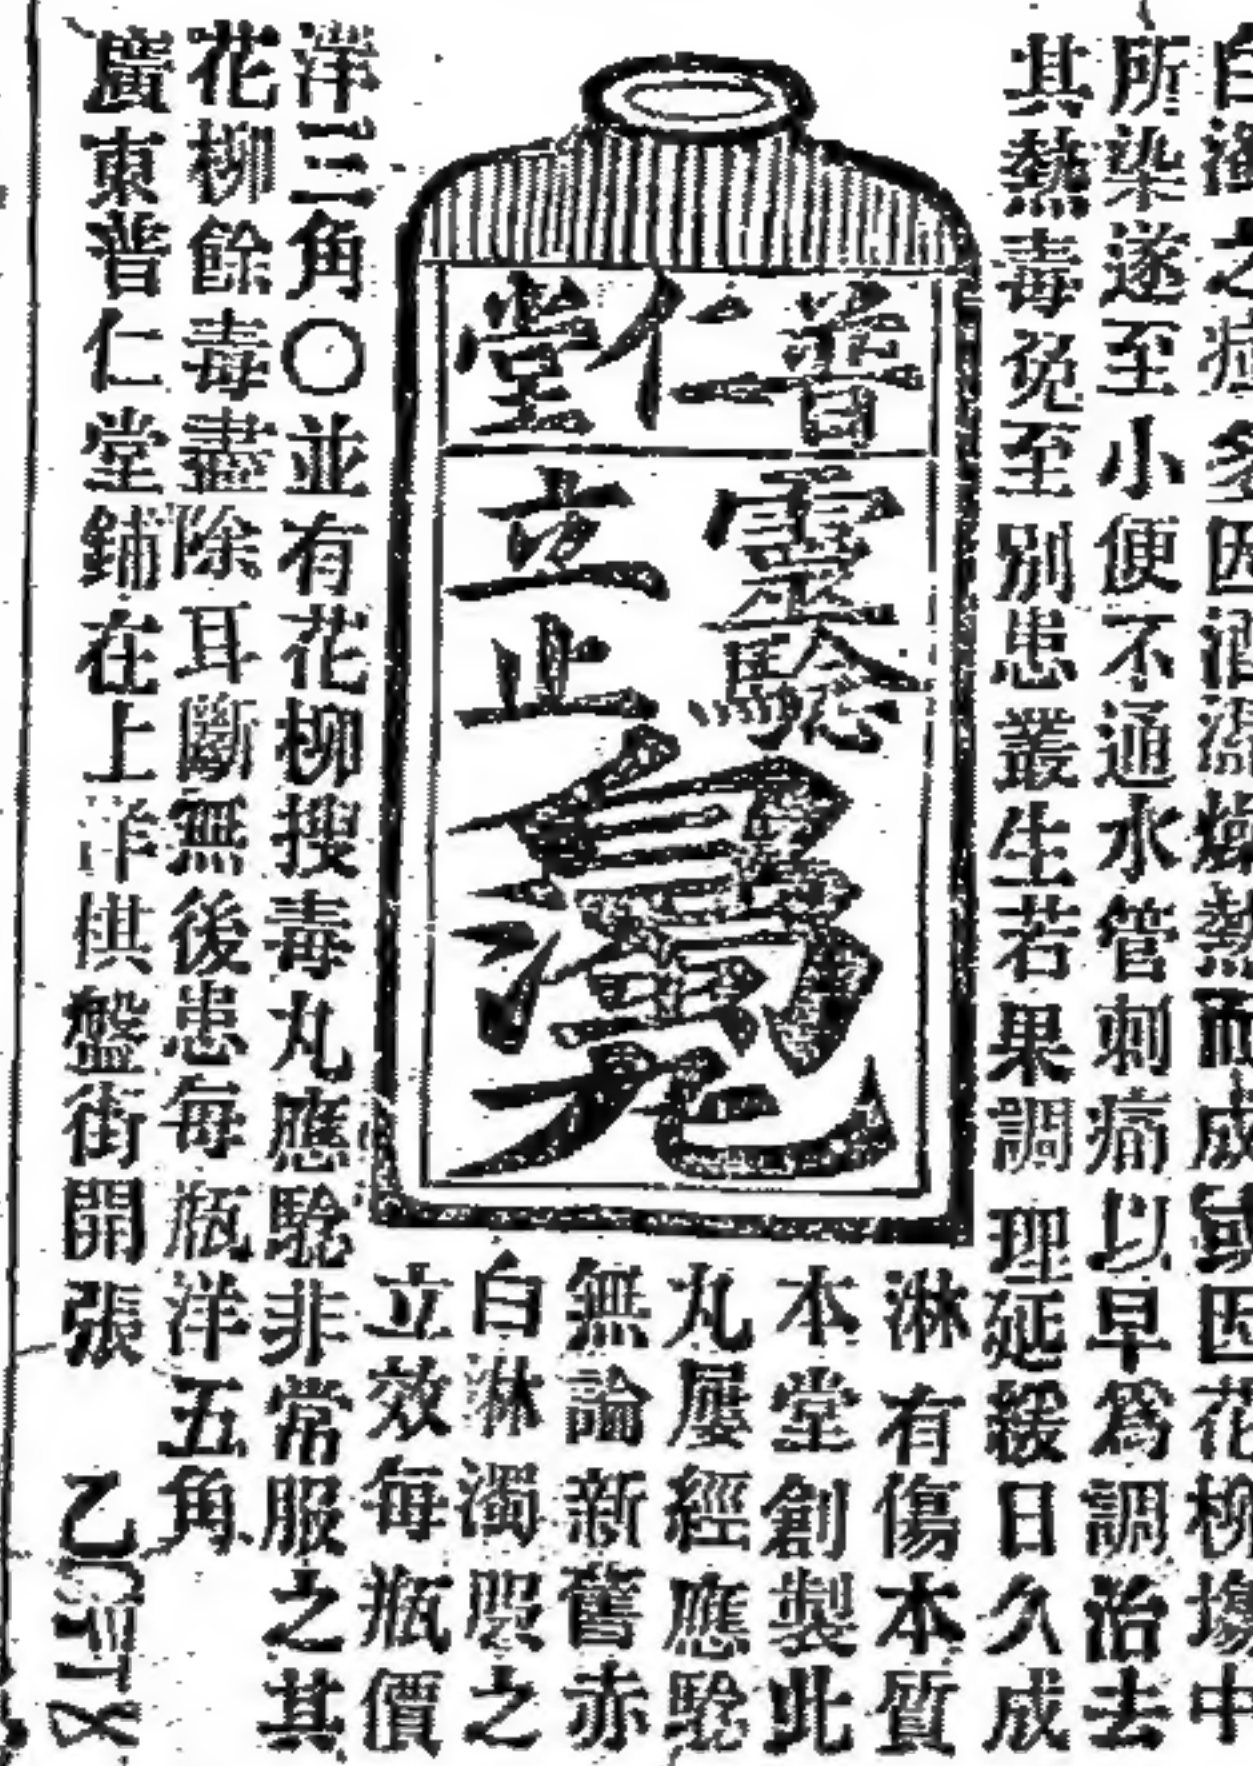 白濁之症多因酒濕燥熱而成或因花柳塲中
所染遂至小便不通水管刺痛以早爲調治去
其熱毒免至別患叢生若果調理延緩日久成
淋有傷本質
本堂創製此
丸屢經應騐
無論新舊赤
白淋濁服之
立效每瓶價
普仁堂
靈騐
立止白濁丸
洋三角〇並有花柳搜毒丸應騐非常服之其
花柳餘毒盡除耳斷無後患每瓶洋五角
廣東普仁堂鋪在上洋棋盤街開張
乙